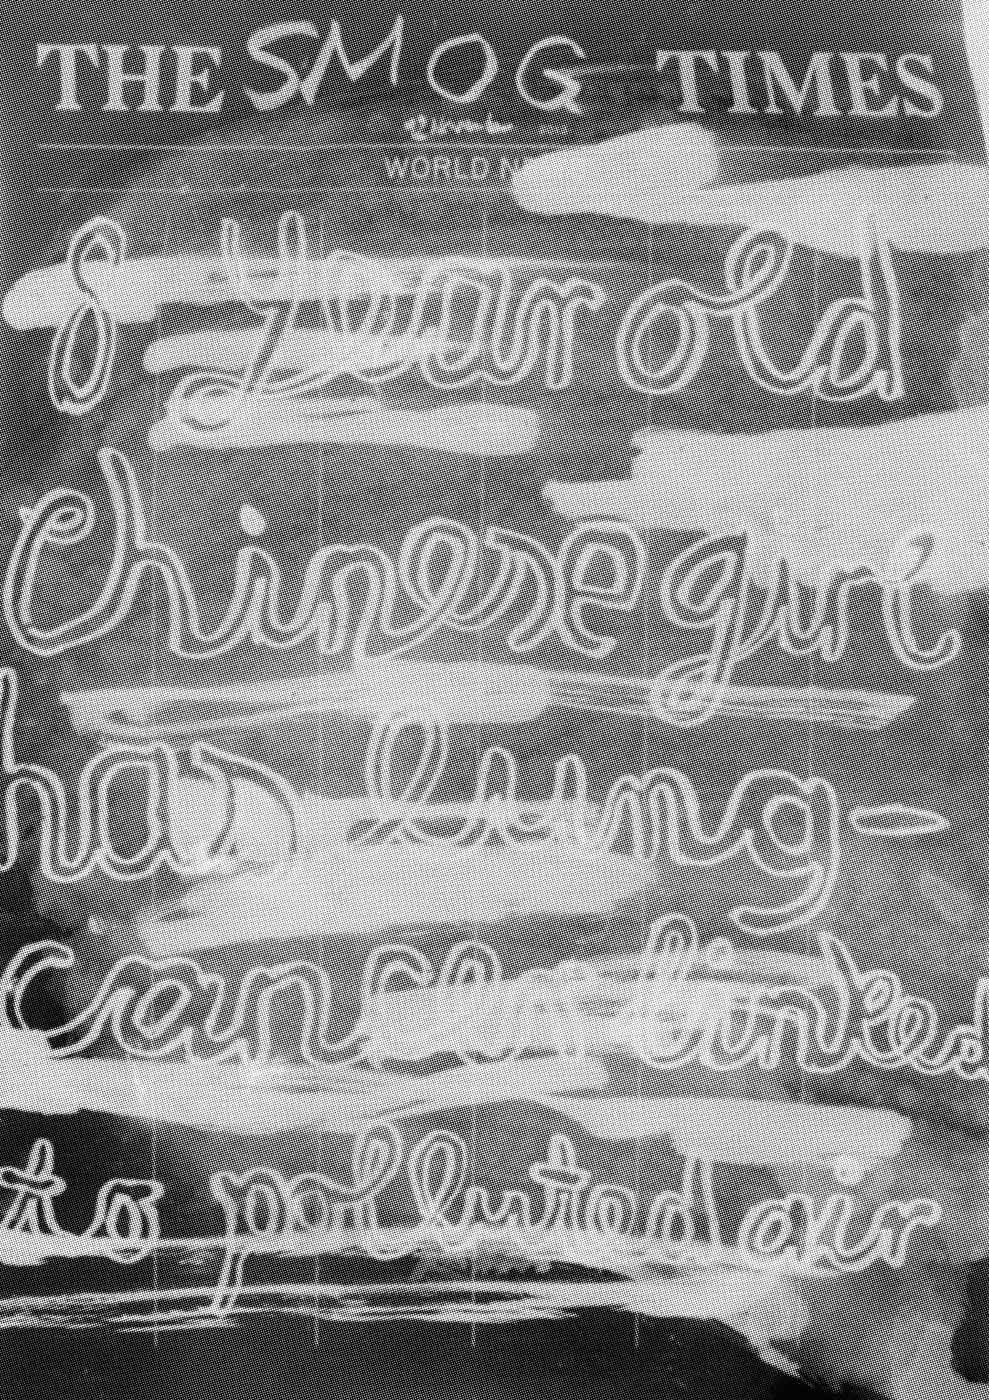 THE SMOG TIMES
November 2013
WORLD
8 Year old
Chinese girl
has lung-
cancer linked
to polluted air